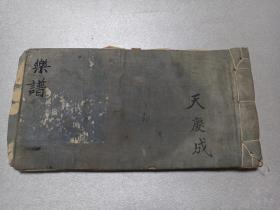 樂譜
天慶成